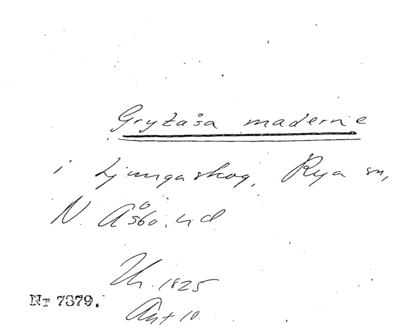 Grytåsa maderne
i Ljungaskog, Rya sn,
N. Åsbo. hd
Uh. 1825
Ant 10.
Nr 7879.